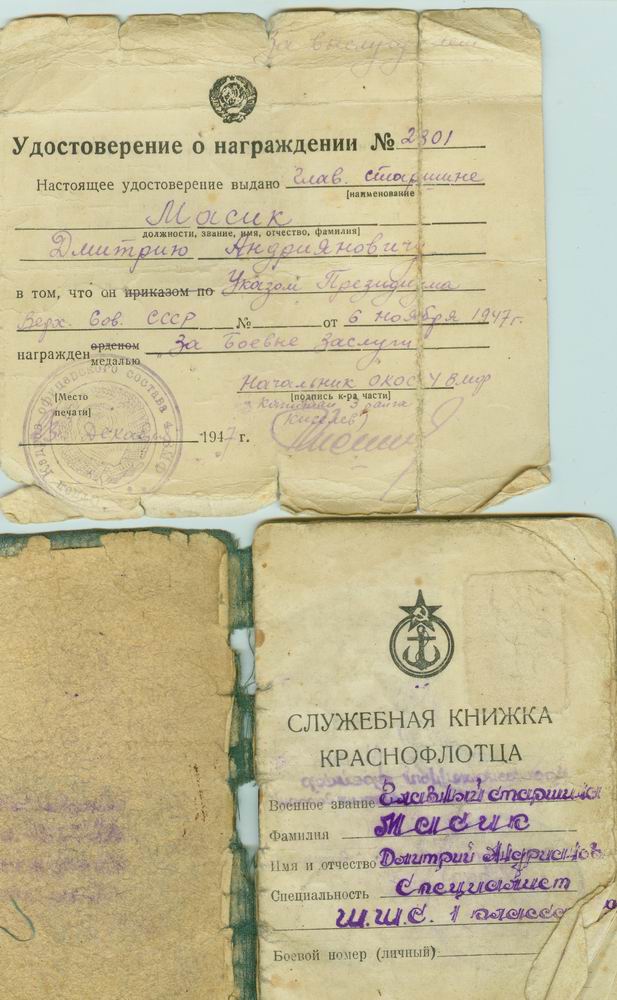 За выслугу лет
Удостоверение о награждении № 2301
Настоящее удостоверение выдано Глав. старшине
[наименование
Масик
должности, звание, имя, отчество, фамилия]
Дмитрию Андрияновичу
в том, что он приказом по Указом Президиума
Верх. Сов. СССР № от 6 ноября 1947 г.
орденом
награжден За боевые заслуги
медалью
Начальник ОКОС 4 ВМФ
[Место [подпись к-ра части]
капитан 3 ранга
печати] (Киселев)
Декабря 1947 г.
СЛУЖЕБНАЯ КНИЖКА
КРАСНОФЛОТЦА
Военное звание Главный старшина
Фамилия Масик
Имя и отчество Дмитрий Андрианов
Специальность Специалист
Ш.Ш.С. 1 класса
Боевой номер (личный)